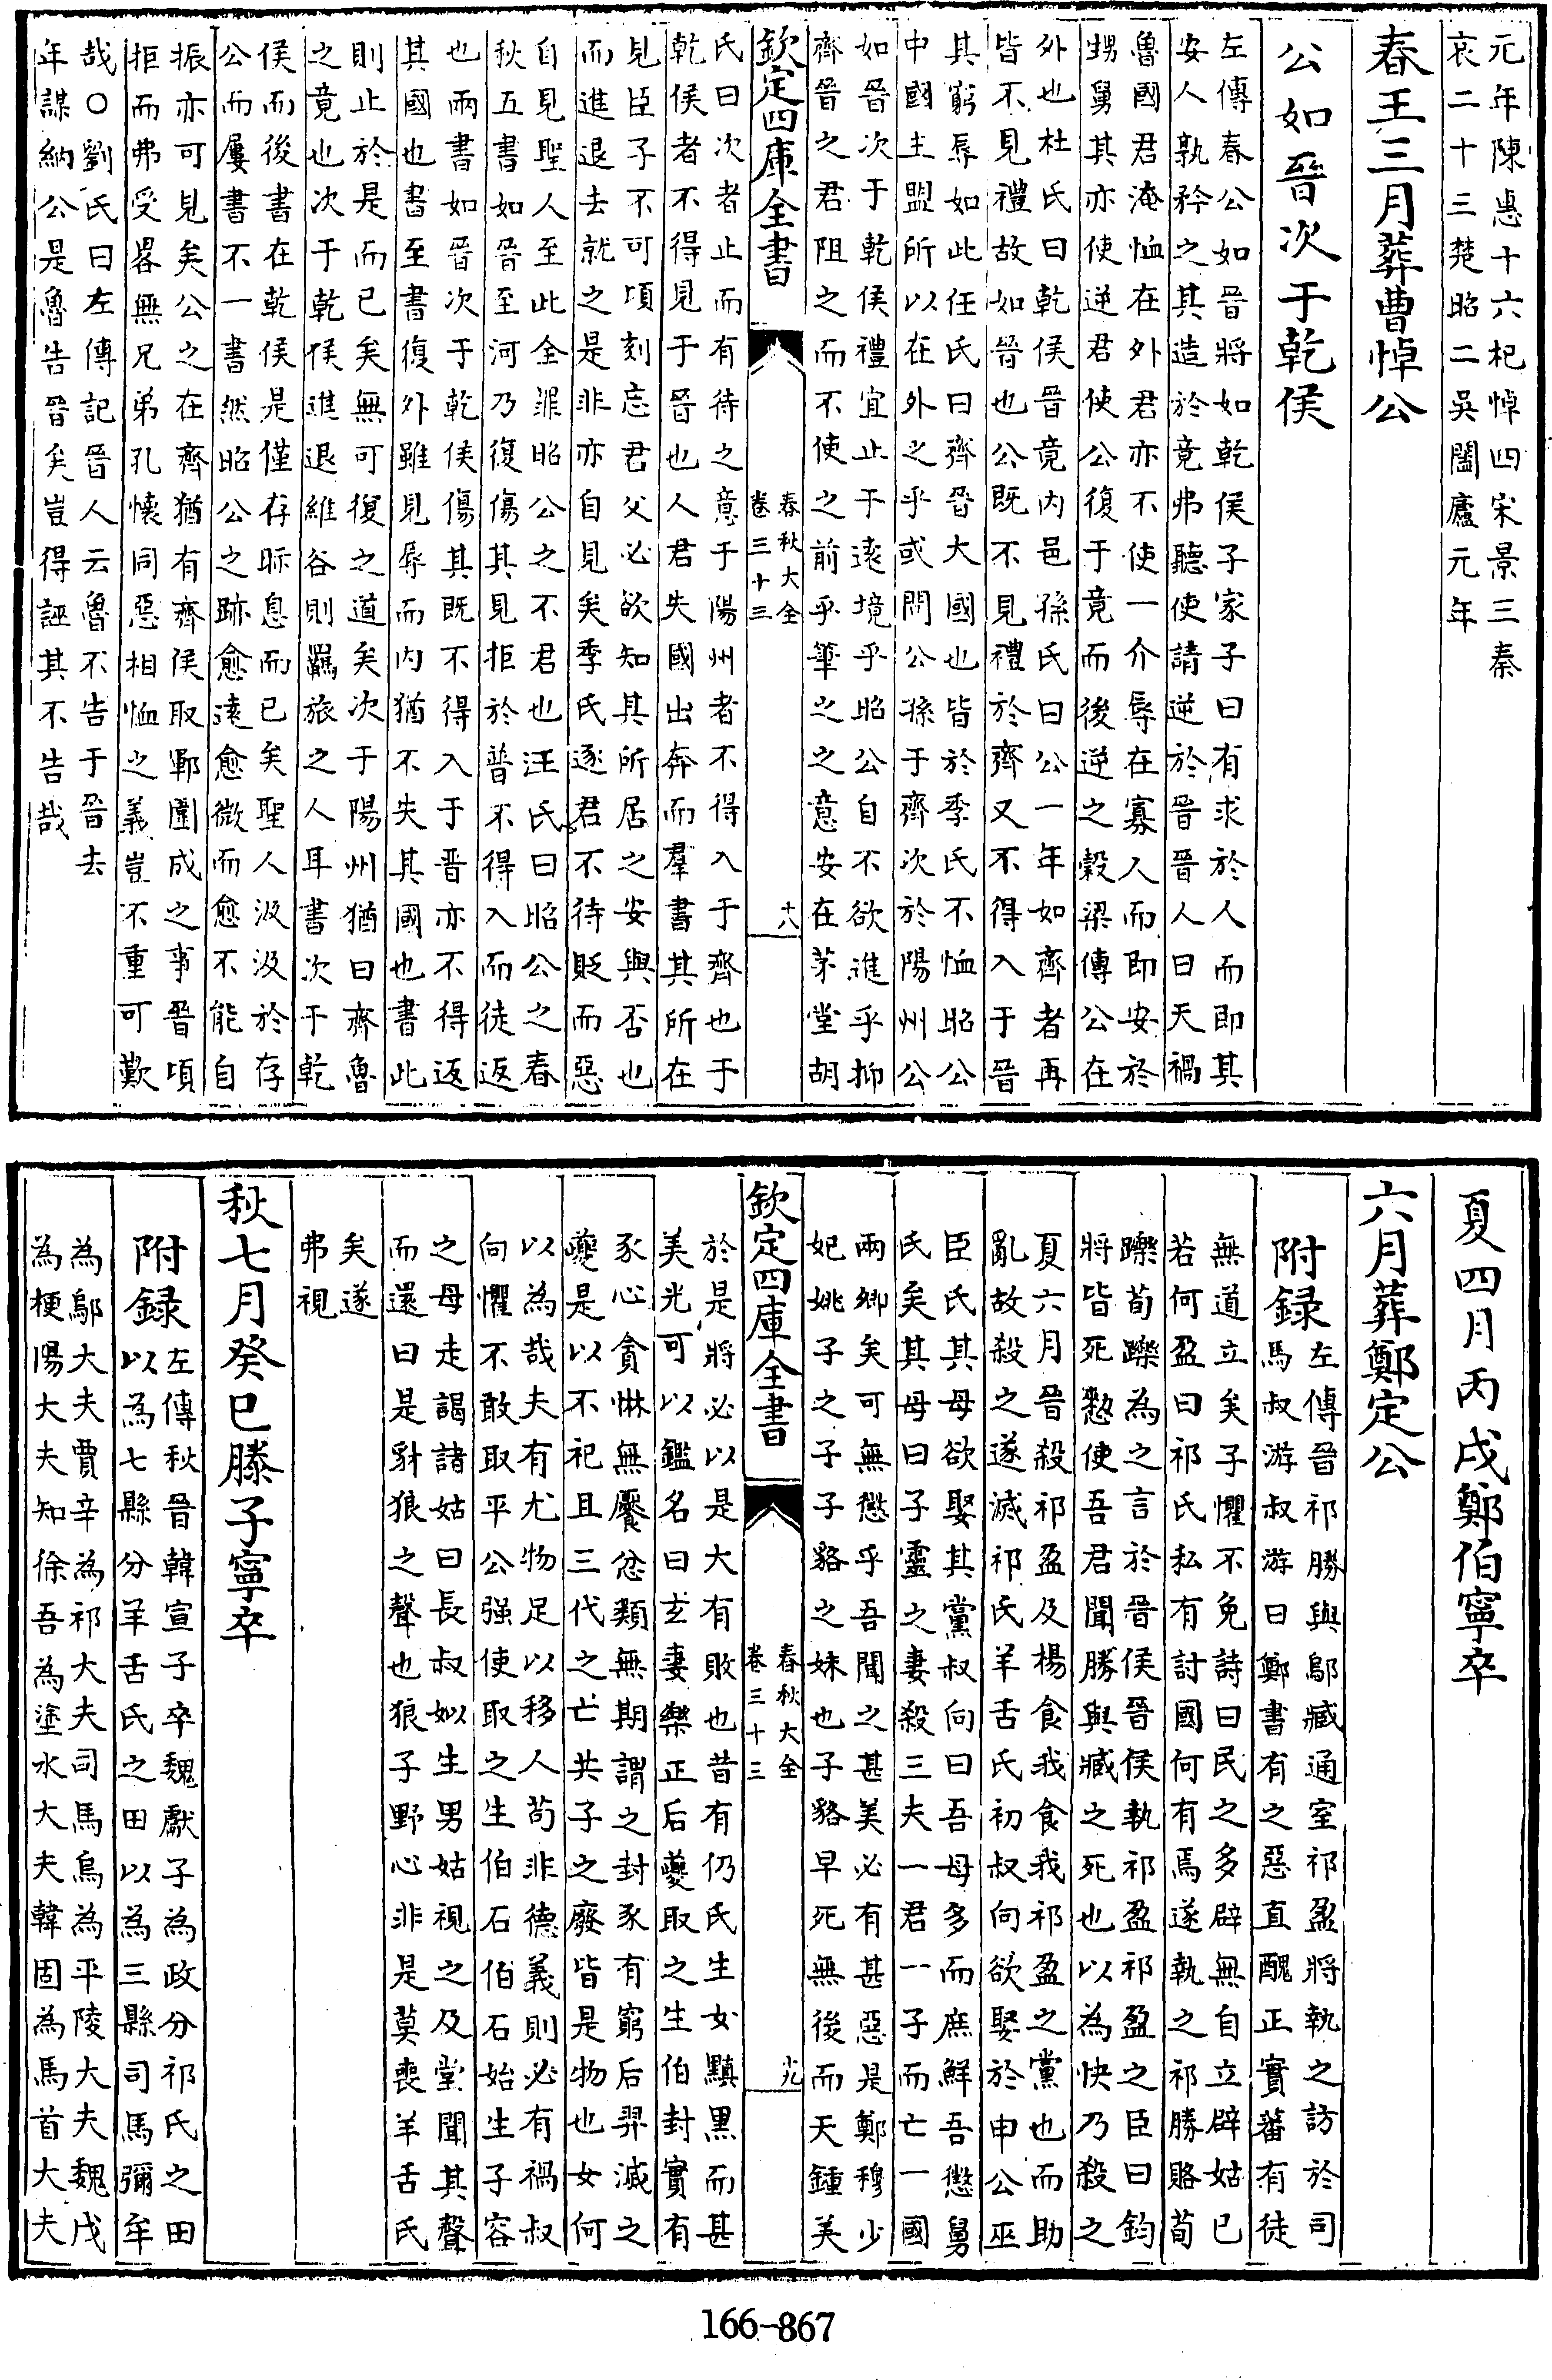 元年陳惠十六杞悼四宋景三秦
哀二十三楚昭二吳闔廬元年
春王三月葬曹悼公
公如晉次于乾侯
左傳春公如晉將如乾侯子家子曰有求於人而即其
安人孰矜之其造於竟弗聽使請逆於晉晉人曰天禍
魯國君淹恤在外君亦不使一介辱在寡人而即安於
甥舅其亦使逆君使公復于竟而後逆之穀梁傳公在
外也杜氏曰乾侯晉竟内邑孫氏曰公一年如齊者再
皆不見禮故如晉也公既不見禮於齊又不得入于晉
其窮辱如此任氏曰齊晉大國也皆於季氏不恤昭公
中國主盟所以在外之乎或問公孫于齊次於陽州公
如晉次于乾侯禮宜止于遠境乎昭公自不欲進乎抑
齊晉之君阻之而不使之前乎筆之之意安在茅堂胡
欽定四庫全書
春秋大全
卷三十三
十八
氏曰次者止而有待之意于陽州者不得入于齊也于
乾侯者不得見于晉也人君失國出奔而羣書其所在
見臣子不可頃刻忘君父必欲知其所居之安與否也
而進退去就之是非亦自見矣季氏逐君不待貶而惡
自見聖人至此全罪昭公之不君也汪氏曰昭公之春
秋五書如晉至河乃復傷其見拒於晉不得入而徒返
也兩書如晉次于乾侯傷其既不得入于晉亦不得返
其國也書至書復外雖見辱而内猶不失其國也書此
則止於是而已矣無可復之道矣次于陽州猶曰齊魯
之竟也次于乾侯進退維谷則羈旅之人耳書次于乾
侯而後書在乾侯是僅存眎息而已矣聖人汲汲於存
公而屢書不一書然昭公之跡愈遠愈微而愈不能自
振亦可見矣公之在齊猶有齊侯取鄆圍成之事晉頃
拒而弗受畧無兄弟孔懷同惡相恤之義豈不重可歎
哉○劉氏曰左傳記晉人云魯不告于晉去
年謀納公是魯告晉矣豈得誣其不告哉
夏四月丙戌鄭伯寧卒
六月葬鄭定公
附録左傳晉祁勝與鄔臧通室祁盈將執之訪於司
馬叔游叔游曰鄭書有之惡直醜正實蕃有徒
無道立矣子懼不免詩曰民之多辟無自立辟姑已
若何盈曰祁氏私有討國何有焉遂執之祁勝賂荀
躒荀躒為之言於晉侯晉侯執祁盈祁盈之臣曰鈞
將皆死憖使吾君聞勝與臧之死也以為快乃殺之
夏六月晉殺祁盈及楊食我食我祁盈之黨也而助
亂故殺之遂滅祁氏羊舌氏初叔向欲娶於申公巫
臣氏其母欲娶其黨叔向曰吾母多而庶鮮吾懲舅
氏矣其母曰子靈之妻殺三夫一君一子而亡一國
兩卿矣可無懲乎吾聞之甚美必有甚惡是鄭穆少
妃姚子之子子貉之妹也子貉早死無後而天鍾美
欽定四庫全書
春秋大全
卷三十三
十九
於是將必以是大有敗也昔有仍氏生女黰黑而甚
美光可以鑑名曰玄妻樂正后夔取之生伯封實有
豕心貪惏無饜忿類無期謂之封豕有窮后羿滅之
夔是以不祀且三代之亡共子之廢皆是物也女何
以為哉夫有尤物足以移人苟非德義則必有禍叔
向懼不敢取平公强使取之生伯石伯石始生子容
之母走謁諸姑曰長叔姒生男姑視之及堂聞其聲
而還曰是豺狼之聲也狼子野心非是莫喪羊舌氏
矣遂
弗視
秋七月癸巳滕子寧卒
附録左傳秋晉韓宣子卒魏獻子為政分祁氏之田
以為七縣分羊舌氏之田以為三縣司馬彌牟
為鄔大夫賈辛為祁大夫司馬烏為平陵大夫魏戊
為梗陽大夫知徐吾為塗水大夫韓固為馬首大夫
166-867